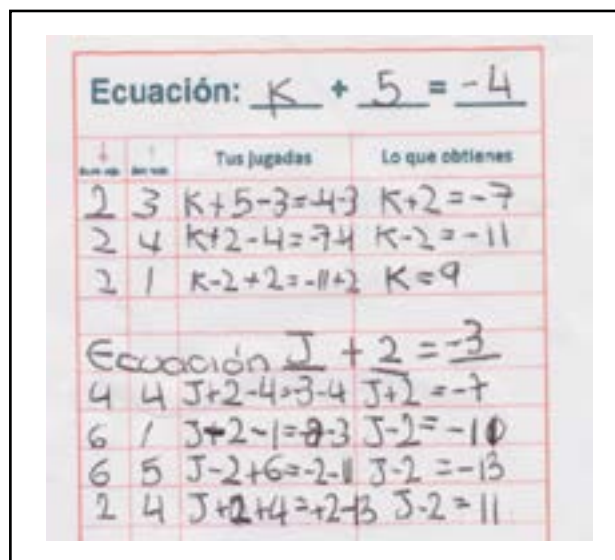 Ecuación: K + 5 = -4
Tus jugadas Lo que obtienes
2 3 K+5-3=-4-3 K+2=-7
2 4 K+2-4=-7-4 K-2=-11
2 1 K-2+2=-11+2 K=9
Ecuación J + 2 = -3
4 4 J+2-4=-3-4 J+2=-7
6 1 J+2-1=-3 J-2=-10
6 5 J-2+6=-2-11 J-2=-13
2 4 J+2+4=+2-13 J-2=11